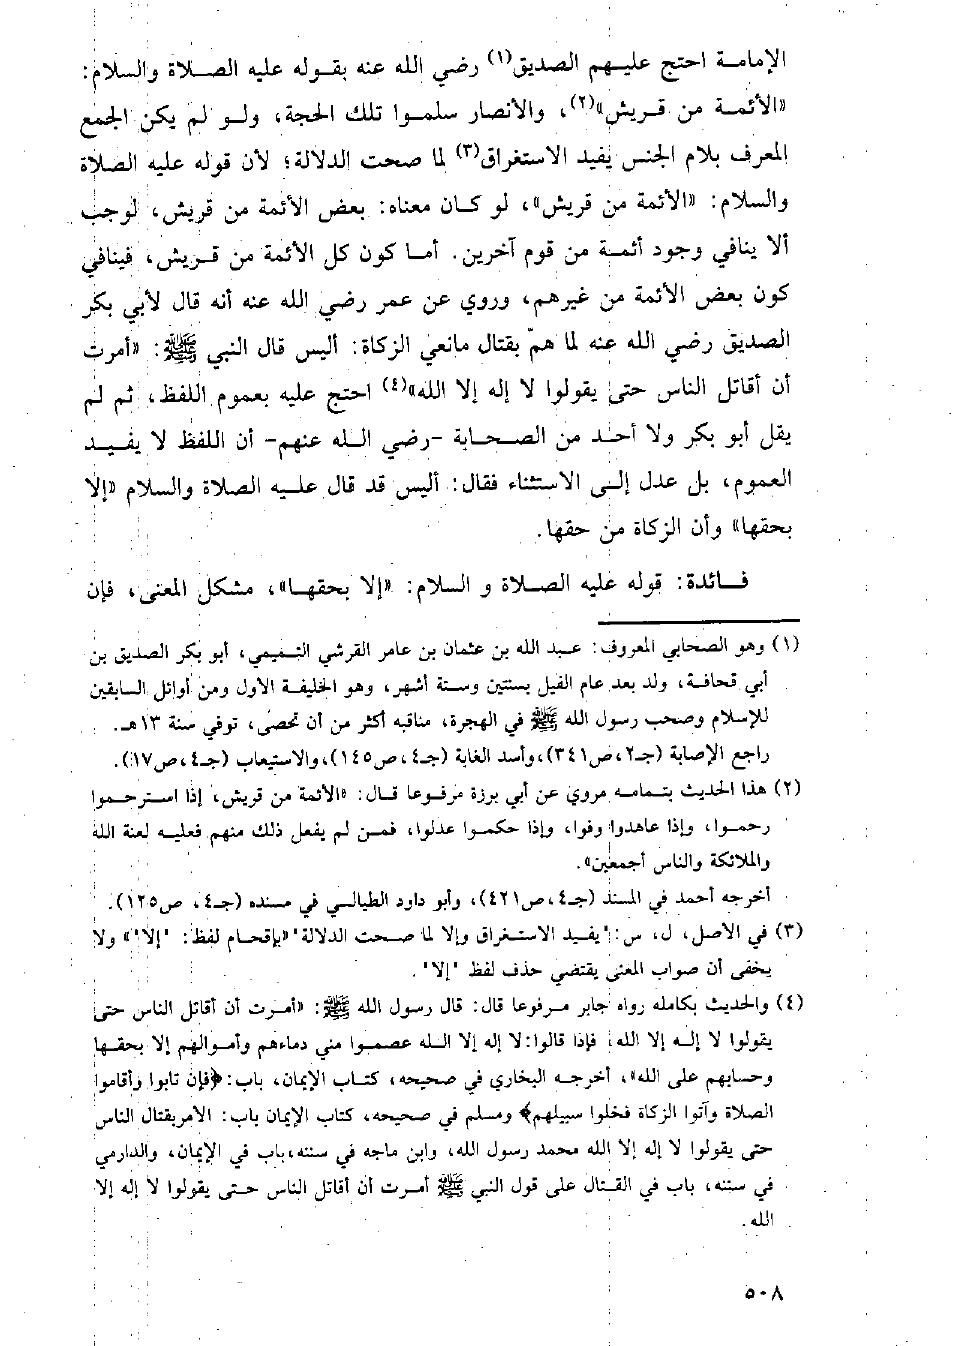 الإمامة احتج عليهم الصديق(١) رضي الله عنه بقوله عليه الصلاة والسلام:
«الأئمة من قريش»(٢)، والأنصار سلموا تلك الحجة، ولو لم يكن الجمع
المعرف بلام الجنس يفيد الاستغراق(٣) لما صحت الدلالة؛ لأن قوله عليه الصلاة
والسلام: «الأئمة من قريش»، لو كان معناه: بعض الأئمة من قريش، لوجب
ألا ينافي وجود أئمة من قوم آخرين. أما كون كل الأئمة من قريش، فينافي
كون بعض الأئمة من غيرهم، وروي عن عمر رضي الله عنه أنه قال لأبي بكر
الصديق رضي الله عنه لما همّ بقتال مانعي الزكاة: أليس قال النبي ﷺ: «أمرت
أن أقاتل الناس حتى يقولوا لا إله إلا الله»(٤) احتج عليه بعموم اللفظ، ثم لم
يقل أبو بكر ولا أحد من الصحابة -رضي الله عنهم- أن اللفظ لا يفيد
العموم، بل عدل إلى الاستثناء فقال: أليس قد قال عليه الصلاة والسلام «إلا
بحقها» وأن الزكاة من حقها.
فائدة: قوله عليه الصلاة و السلام: «إلا بحقها»، مشكل المعنى، فإن
(١) وهو الصحابي المعروف: عبد الله بن عثمان بن عامر القرشي التميمي، أبو بكر الصديق بن
أبي قحافة، ولد بعد عام الفيل بسنتين وستة أشهر، وهو الخليفة الأول ومن أوائل السابقين
للإسلام وصحب رسول الله ﷺ في الهجرة، مناقبه أكثر من أن تحصى، توفي سنة ١٣هـ.
راجع الإصابة (جـ٢،ص٣٤١)،وأسد الغابة (جـ٤،ص١٤٥)،والاستيعاب (جـ٤،ص١٧).
(٢) هذا الحديث بتمامه مروي عن أبي برزة مرفوعا قال: «الأئمة من قريش، إذا استرحموا
رحموا، وإذا عاهدوا وفوا، وإذا حكموا عدلوا، فمن لم يفعل ذلك منهم فعليه لعنة الله
والملائكة والناس أجمعين».
أخرجه أحمد في المسند (جـ٤،ص٤٢١)، وأبو داود الطيالسي في مسنده (جـ٤، ص١٢٥).
(٣) في الأصل، ل، س: "يفيد الاستغراق وإلا لما صحت الدلالة"«بإقحام لفظ: "إلا"» ولا
يخفى أن صواب المعنى يقتضي حذف لفظ "إلا".
(٤) والحديث بكامله رواه جابر مرفوعا قال: قال رسول الله ﷺ: «أمرت أن أقاتل الناس حتى
يقولوا لا إله إلا الله فإذا قالوا:لا إله إلا الله عصموا مني دماءهم وأموالهم إلا بحقها
وحسابهم على الله»، أخرجه البخاري في صحيحه، كتاب الإيمان، باب: ﴿فإن تابوا وأقاموا
الصلاة وآتوا الزكاة فخلوا سبيلهم﴾ ومسلم في صحيحه، كتاب الإيمان باب: الأمر بقتال الناس
حتى يقولوا لا إله إلا الله محمد رسول الله، وابن ماجه في سننه، باب في الإيمان، والدارمي
في سننه، باب في القتال على قول النبي ﷺ أمرت أن أقاتل الناس حتى يقولوا لا إله إلا
الله.
٥٠٨